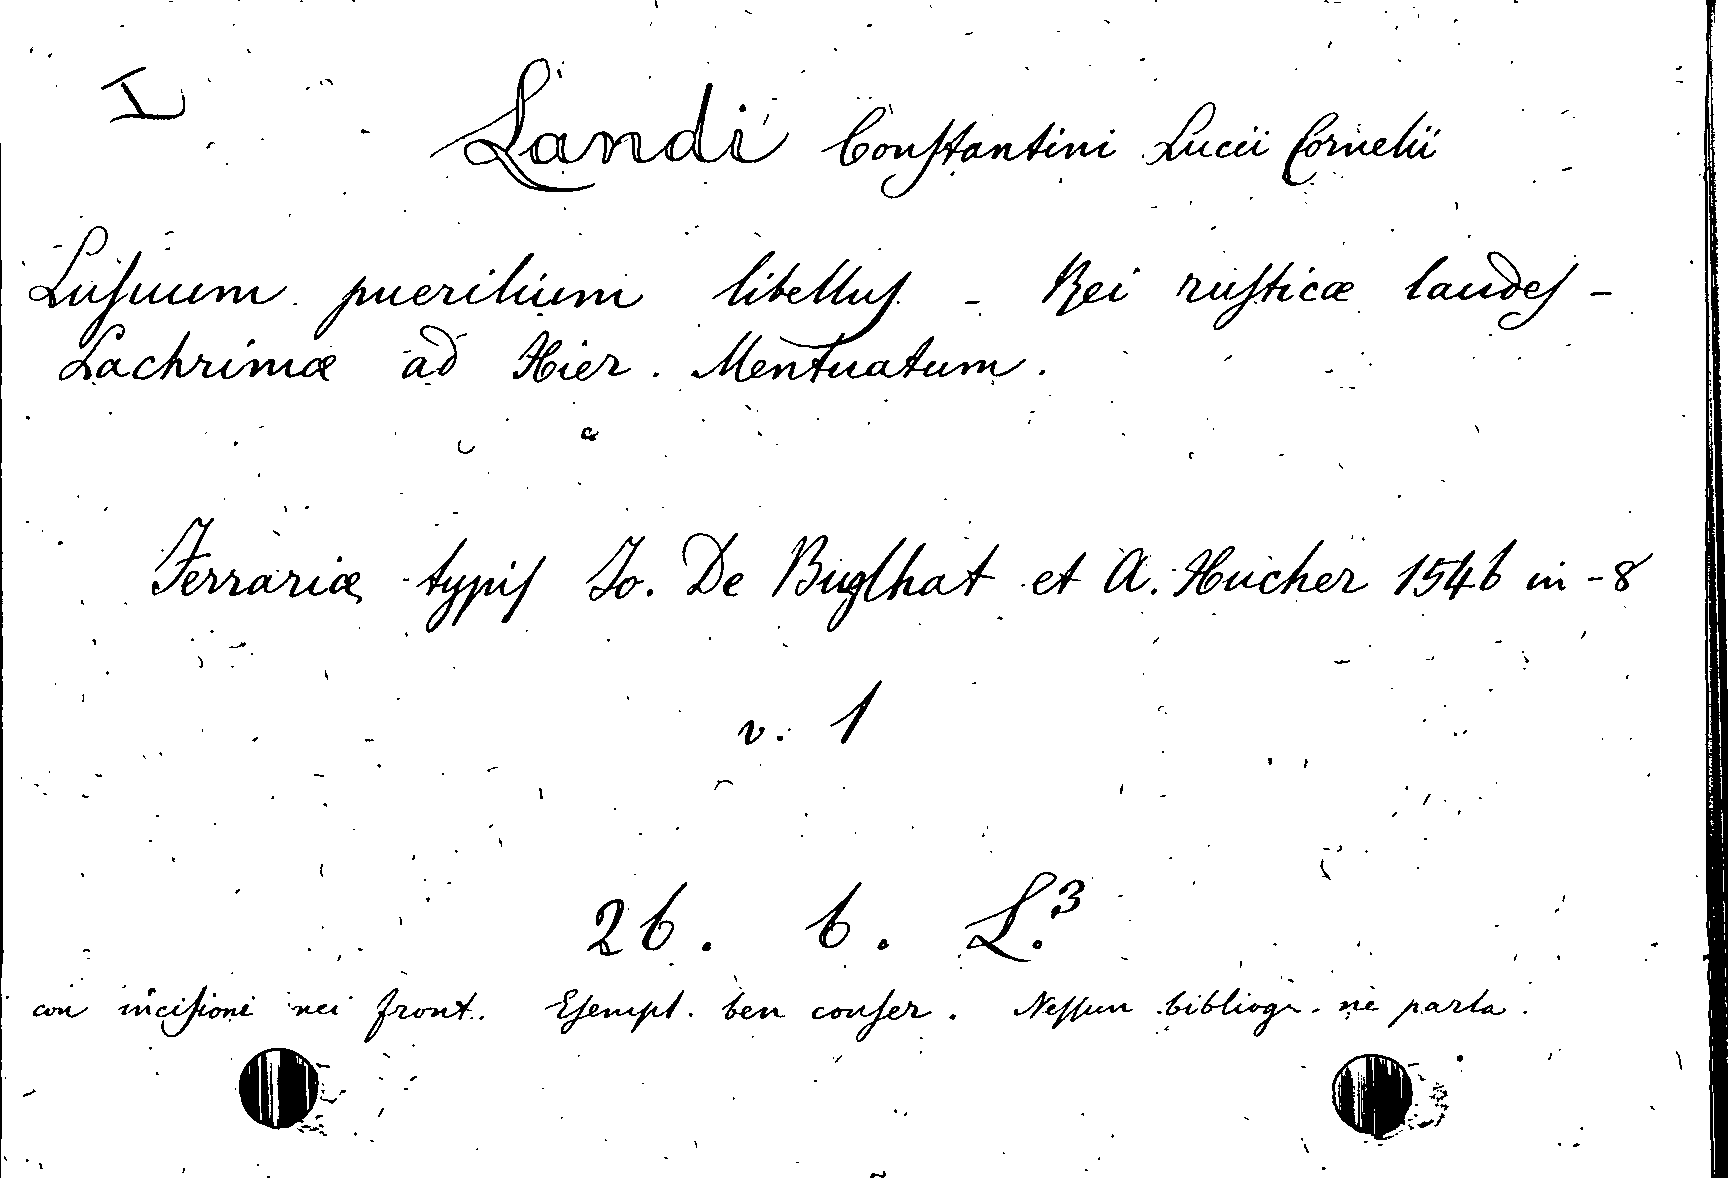 I
Landi Constantini Lucii Cornelii
Lusuum puerilium libellus - Rei rusticæ laudes -
Lachrimæ ad Hier. Mentuatum.
Ferrariæ typis Jo. De Buglhat et A. Hucher 1546 in-8
v. 1
26. 6. L.³
con incisioni nei front. Esempl. ben conser. Nessun bibliogr. ne parla.